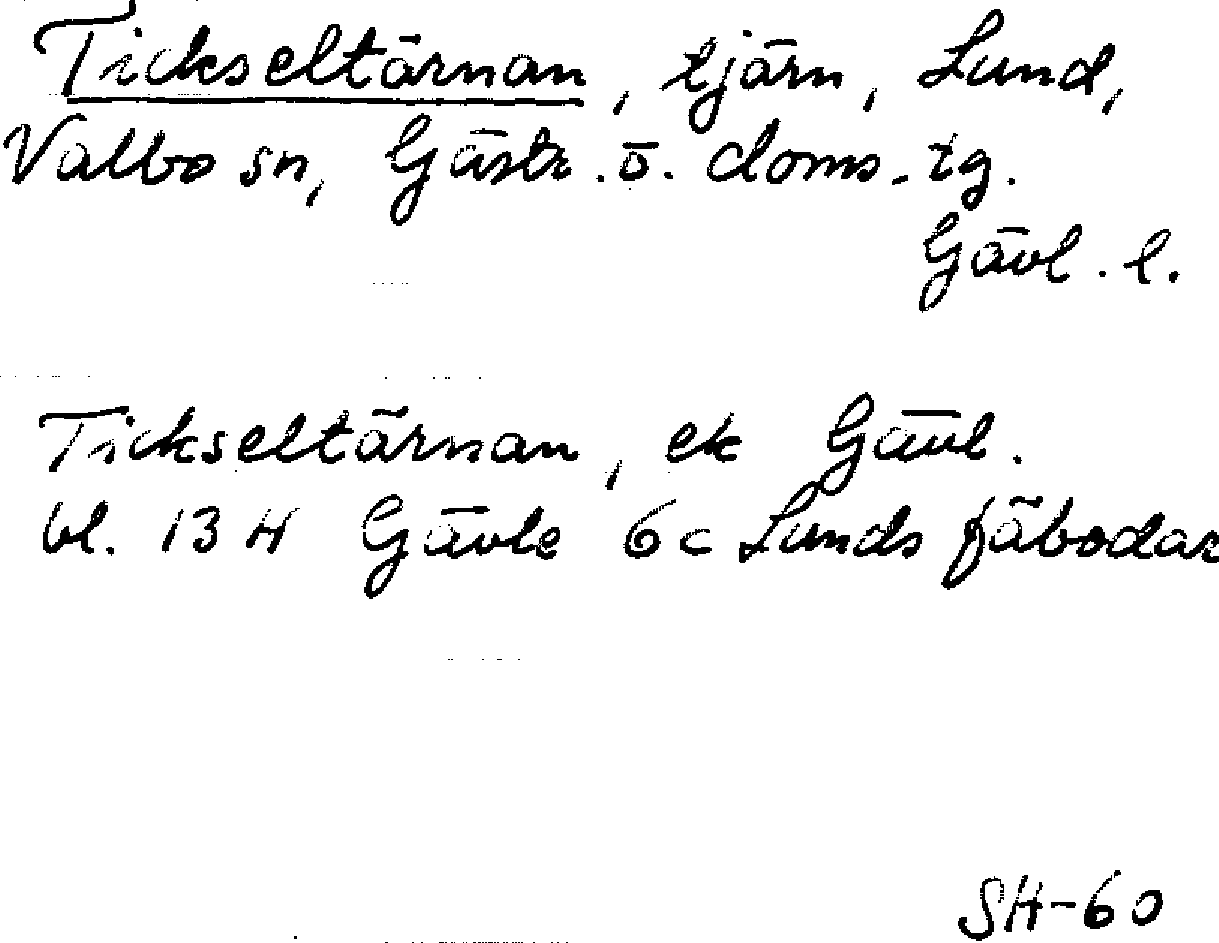 Tickseltärnan, tjärn, Lund,
Valbo sn, Gästr. ö. doms. tg.
Gävl. l.
Tickseltärnan, ek Gävl.
bl. 13 H Gävle 6c Lunds fäbodar
SH-60